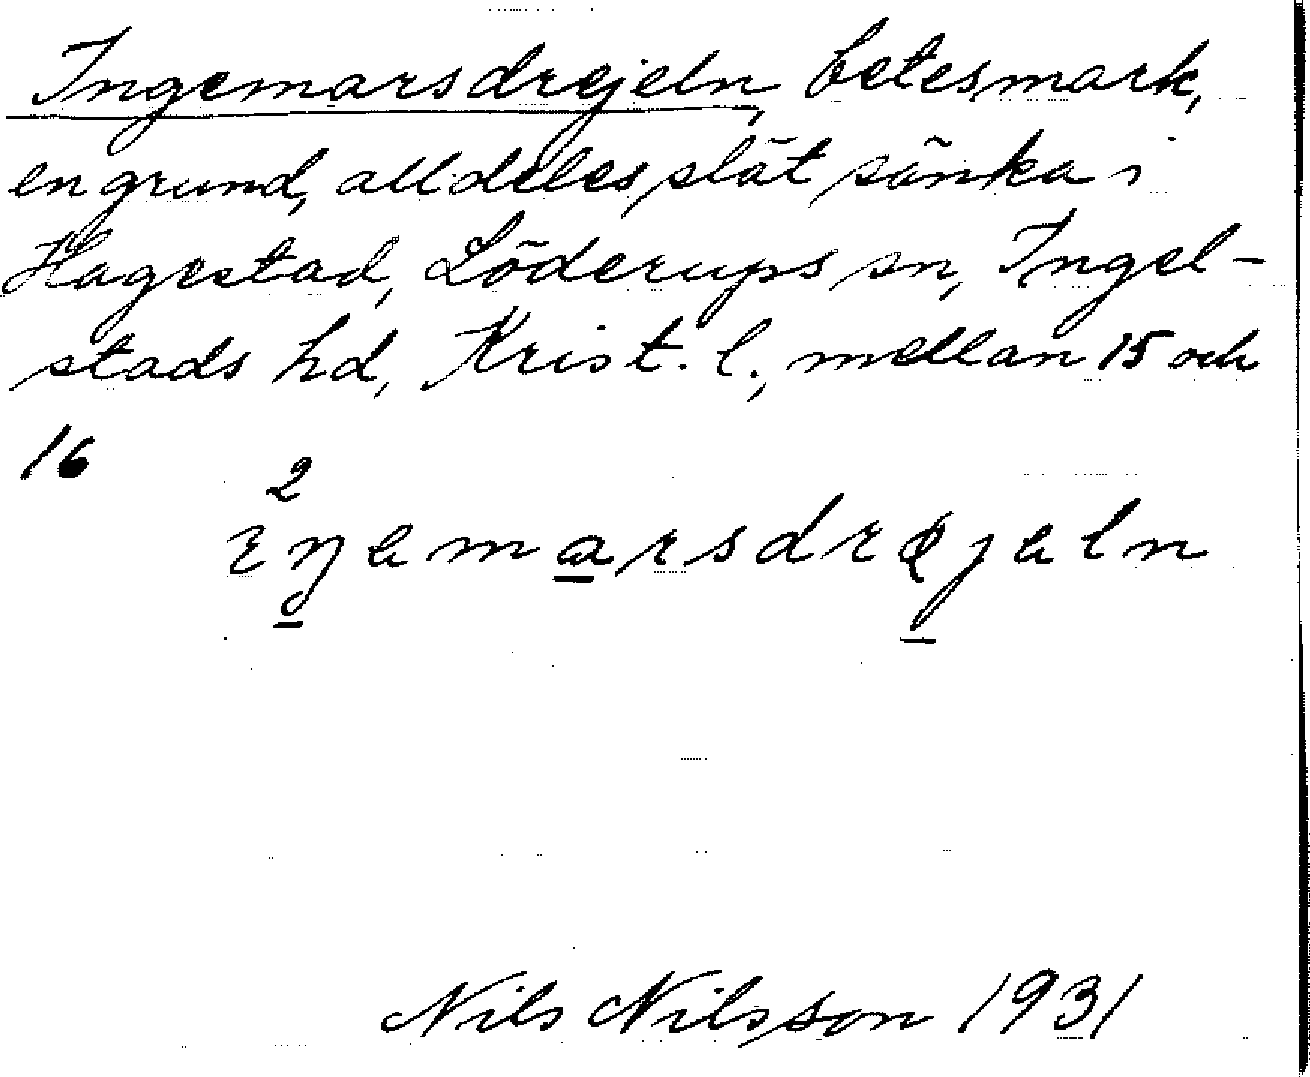 Ingemarsdrejeln, betesmark,
en grund, alldeles slät sänka i
Hagestad, Löderups sn, Ingel-
stads hd, Krist. l., mellan 15 och
16
2
Nils Nilsson 1931